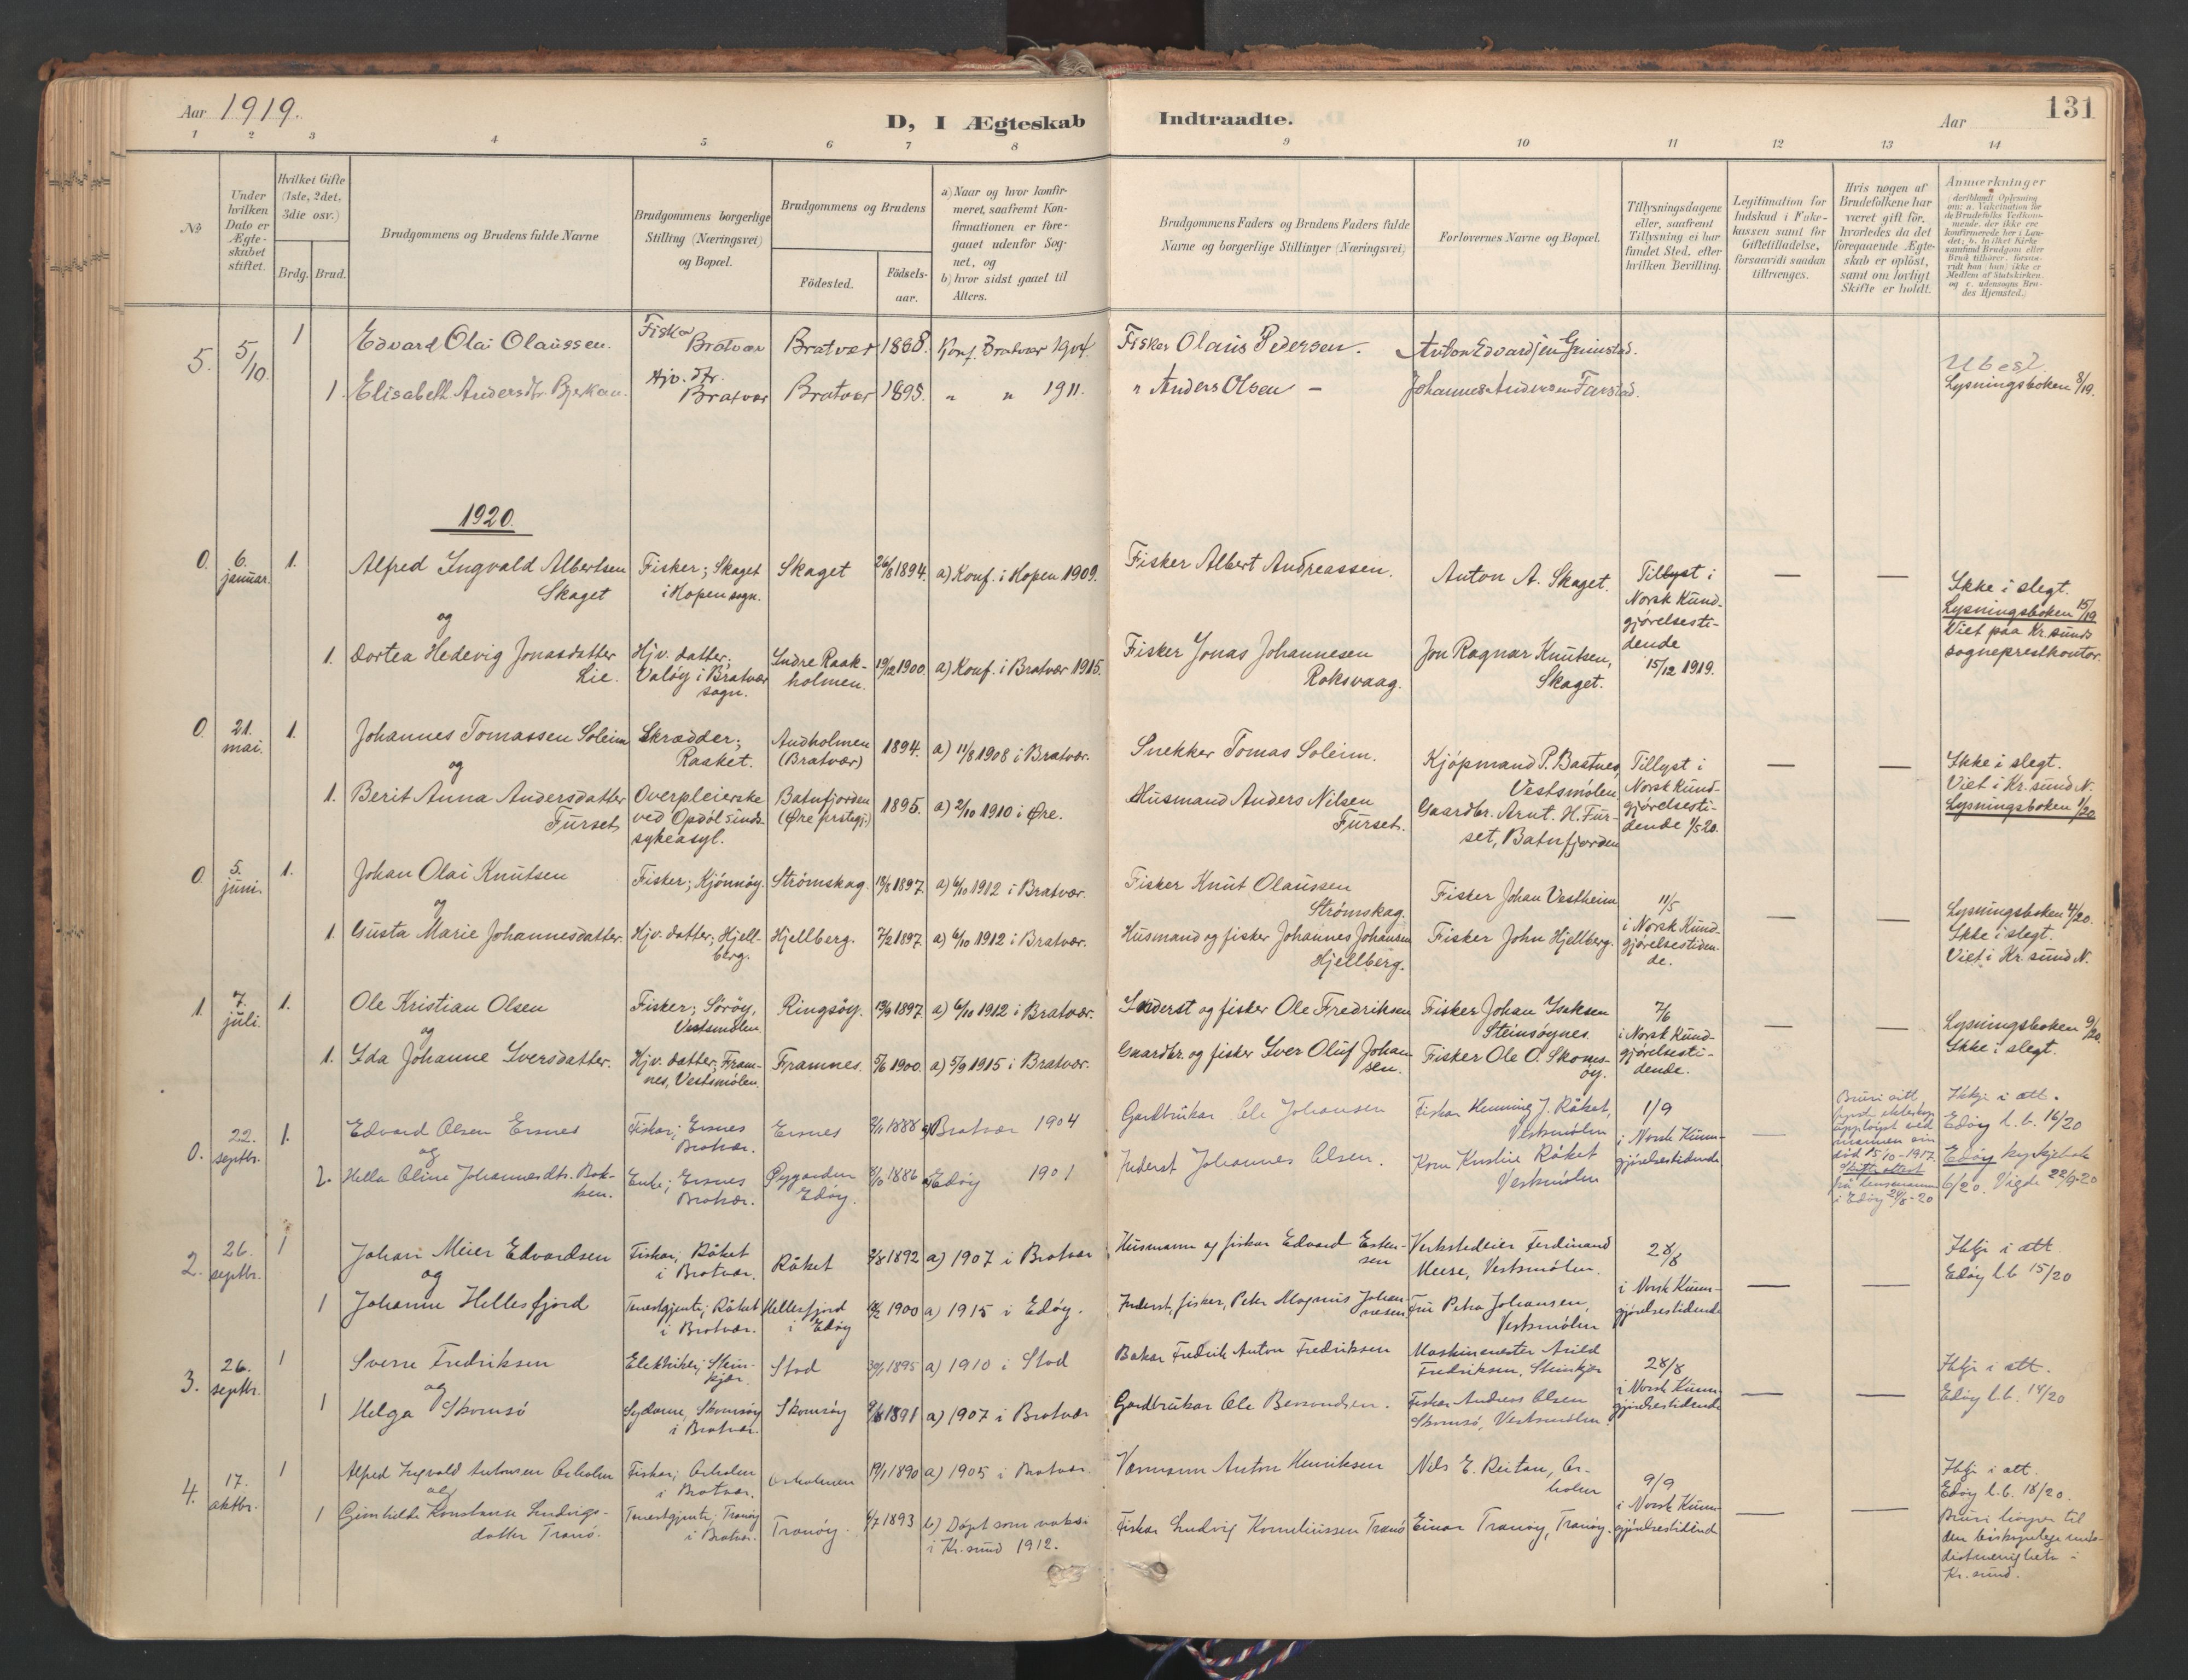 Aar 1919.
D, I Ægteskab Indtraadte.
Aar
131
1 2 3 4 5 6 7 8 9 10 11 12 13 14
No
Under hvilken Dato er Ægteskabet stiftet.
Hvilket Gifte (1ste, 2det, 3die osv.)
Brdg. Brud.
Brudgommens og Brudens fulde Navne
Brudgommens borgerlige Stilling (Næringsvei) og Bopæl.
Brudgommens og Brudens
Födested.
Födsels-aar.
a) Naar og hvor konfirmeret, saafremt Konfirmationen er foregaaet udenfor Sognet, og
b) hvor sidst gaaet til Alters.
Brudgommens Faders og Brudens Faders fulde Navne og borgerlige Stillinger (Næringsvei)
Forlovernes Navne og Bopæl.
Tillysningsdagene eller, saafremt Tillysning ei har fundet Sted, efter hvilken Bevilling.
Legitimation for Indskud i Enkekassen samt for Giftetilladelse, forsaavidt saadan tiltrænges.
Hvis nogen af Brudefolkene har været gift för, hvorledes da det foregaaende Ægteskab er oplöst, samt om lovligt Skifte er holdt.
Anmærkninger
5. 5/10. 1 Edvard Olai Olaussen. Fisker Bratvær Bratvær 1888. Konf. Bratvær 1904. Fisker Olaus Pedersen. Anton Edvardsen Grimstad. Ubesl.
1. Elisabeth Andersdtr. Bjerkan. Hjv. dtr. Bratvær Bratvær 1895. " " 1911. " Anders Olsen – Johannes Andersen Farstad. Lysningsboken 8/19.
1920.
0. 6. januar. 1. Alfred Ingvald Albertsen Skaget Fisker; Skaget i Hopen sogn. Skaget 26/8 1894. a) Konf. i Hopen 1909. Fisker Albert Andreassen. Anton A. Skaget. Tillyst i Norsk Kundgjørelsestidende 15/12 1919. — — Ikke i slegt. Lysningsboken 15/19 Viet paa Kr.sunds sogneprestkontor.
og
1. Dortea Hedevig Jonasdatter Lie. Hjv. datter; Valøy i Bratvær sogn. Indre Raakholmen. 19/12 1900. a) Konf. i Bratvær 1915. Fisker Jonas Johannesen Roksvaag. Jon Ragnar Knutsen, Skaget.
0. 21. mai. 1. Johannes Tomassen Soleim Skrædder; Rasket. Andholmen (Bratvær) 1894. a) 11/8 1908 i Bratvær. Snekker Tomas Soleim. Kjøpmand P. Bastnes, Vestsmølen Tillyst i Norsk Kundgjørelsestidende 1/5 20. — — Ikke i slegt. Viet i Kr.sund N. Lysningsboken 1/20.
og
1. Berit Anna Andersdatter Furset Overpleierske ved Opdøl sindssykeasyl. Batnfjorden (Øre prstgj.) 1895. a) 2/10 1910 i Øre. Husmand Anders Nilsen Furset. Gaardbr. Arnt. H. Furset, Batnfjorden
0. 5. juni. 1. Johan Olai Knutsen Fisker; Kjønnøy. Strømskag. 13/8 1897. a) 6/10 1912 i Bratvær. Fisker Knut Olaussen Strømskag. Fisker Johan Vestheim 11/5 i Norsk Kundgjørelsestidende. — — Lysningsboken 4/20. Ikke i slegt. Viet i Kr.sund N.
og
1. Gusta Marie Johannesdatter. Hjv. datter; Hjellberg. Hjellberg. 7/2 1897. a) 6/10 1912 i Bratvær. Husmand og fisker Johannes Johansen Hjellberg. Fisker John Hjellberg.
1. 7. juli. 1. Ole Kristian Olsen Fisker; Sørøy, Vestsmølen. Ringsøy. 13/9 1897. a) 6/10 1912 i Bratvær. Inderst og fisker Ole Fredriksen Fisker Johan Isaksen Steinsøynes. 7/6 i Norsk Kundgjørelsestidende. — — Lysningsboken 9/20. Ikke i slegt.
og
1. Ida Johanne Iversdatter. Hjv. datter; Framnes, Vestsmølen. Framnes. 5/6 1900. a) 5/9 1915 i Bratvær. Gaardbr. og fisker Iver Oluf Johansen. Fisker Ole O. Skomsøy.
0. 22. septbr. 1. Edvard Olsen Ersnes Fiskar; Ersnes Bratvær. Ersnes 1888 a) Bratvær 1904 Gardbrukar Ole Johansen Fiskar Henning J. Råket, Vestsmølen 1/9 i Norsk Kunngjørelsestidende — Ikkje i ætt. Edøy l.b. 16/20
og
2. Hella Oline Johannesdtr. Bakken. Enke; Ersnes Bratvær. Øygarden Edøy. 1886 a) Edøy 1901 Inderst Johannes Olsen. Kona Kristine Råket Vestsmølen i Edøy 24/8-20 Edøy kyrkjebok 6/20. Vigde 22/9-20
2. 26. septbr. 1 Johan Meier Edvardsen Fiskar; Råket i Bratvær. Råket 1892 a) 1907 i Bratvær Husmann og fiskar Edvard Estensen Verkstedeier Ferdinand Meese, Vestsmølen. 28/8 i Norsk Kunngjørelsestidende — — Ikkje i ætt Edøy l.b 15/20
og
1 Johanne Hellesfjord Tenestgjente; Råket i Bratvær. Hellesfjord i Edøy 1900 a) 1915 i Edøy. Inderst, fisker, Peter Magnus Johannesen Fru Petra Johansen, Vestsmølen
3. 26. septbr. 1 Sverre Fredriksen Elektriker; Steinkjær. Stod 1895 a) 1910 i Stod Baker Fredrik Anton Fredriksen Maskinmester Arild Fredriksen, Steinkjer 28/8 i Norsk Kunngjørelsestidende — — Ikkje i ætt. Edøy l.b. 14/20
og
1 Helga Skomsø Sydame, Skomsøy i Bratvær. Skomsøy 1891 a) 1907 i Bratvær Gardbrukar Ole Berrondsen. Fiskar Andreas Olsen Skomsø, Vestsmølen.
4. 17. oktbr. 1 Alfred Ingvald Antonsen Orholm Fiskar; Orholm i Bratvær. Orholmen 19/1 1890 a) 1905 i Bratvær. Vaarmann Anton Henriksen Nils E. Reitan, Orholm 9/9 i Norsk Kunngjørelsestidend — — Ikkje i ætt. Edøy l.b. 18/20.
og
1 Gunhilde Konstanse Ludvigsdatter Tranø. Tenestgjente; Tranøy i Bratvær. Tranøy. 1893 b) Døpt som voksi i Kr.sund 1912. Fiskar Ludvig Korneliussen Tranø Einar Tranøy, Tranøy. Bruri høyrer til den biskopelege metodistmenighet i Kr.sund.